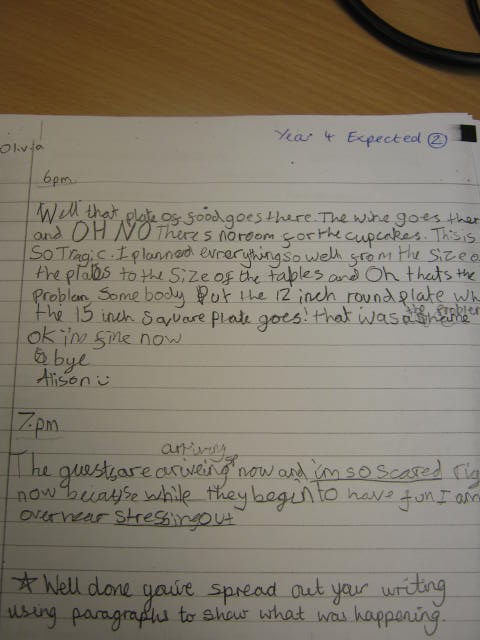 Year 4 Expected 2
Olivia
6pm
Well that plate of food goes there. The wine goes ther
and OH NO Theres no room for the cupcakes. This is
So Tragic. I planned evrerything so well from the Size o
the plates to the Size of the tables and Oh thats the
problem Somebody Put the 12 inch round plate wh
the problem
the 15 inch Square plate goes! that was a shame
ok im fine now
bye
Alison
7.pm
arriving
The guests are ariveing sp now and im so scared rig
now because while they begin to have fun I am
over hear stressing out
Well done you've spread out your writing
using paragraphs to show what was happening.